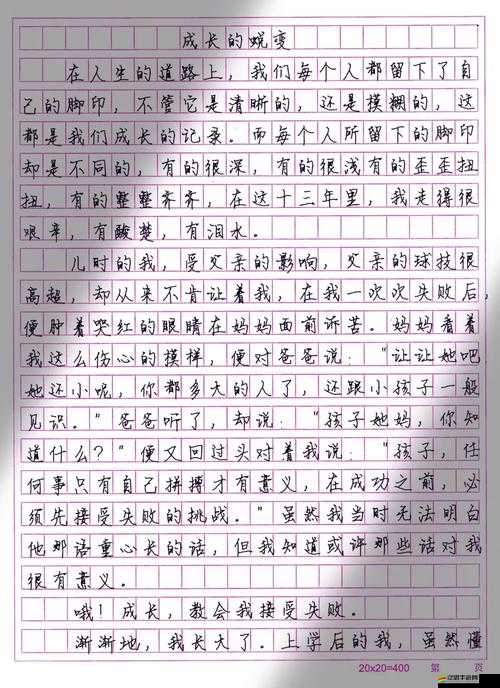 成长的蜕变
在人生的道路上，我们每个人都留下了自
己的脚印，不管它是清晰的，还是摸糊的，这
都是我们成长的记录。而每个人所留下的脚印
却是不同的，有的很深，有的很浅有的歪歪扭
扭，有的整整齐齐，在这十三年里，我走得很
艰辛，有酸楚，有泪水。
儿时的我，受父亲的影响，父亲的球技很
高超，却从来不肯让着我，在我一次次失败后，
便肿着哭红的眼睛在妈妈面前诉苦。妈妈看着
我这么伤心的摸样，便对爸爸说："让让她吧
她还小呢，你都多大的人了，还跟小孩子一般
见识。"爸爸听了，却说："孩子她妈，你知
道什么？"便又回过头对着我说："孩子，任
何事只有自己拼搏才有意义，在成功之前，必
须先接受失败的挑战。"虽然我当时无法明白
他那语重心长的话，但我知道或许那些话对我
很有意义。
哦！成长，教会我接受失败。
渐渐地，我长大了。上学后的我，虽然懂
20×20=400 第 页